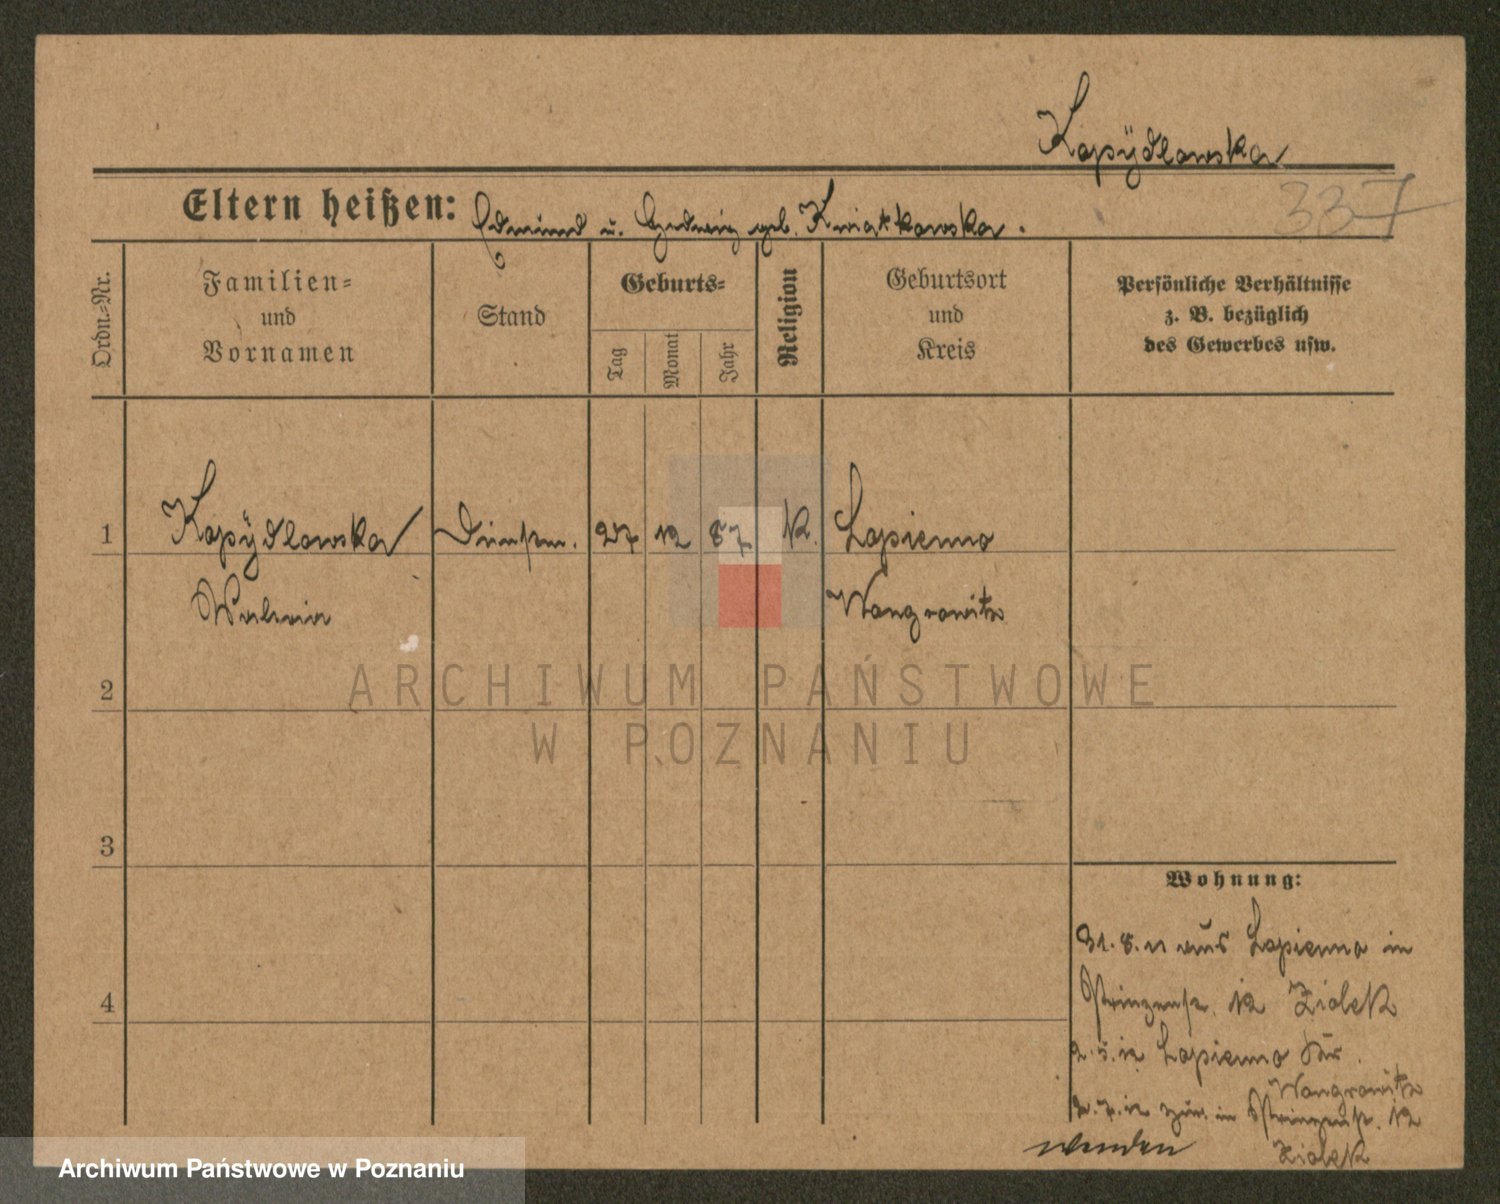 Kapÿdlowska
337
Eltern heißen: Edmund u. Hedwig geb. Kwiatkowska.
Ordn.-Nr.
Familien-
und
Vornamen
Stand
Geburts-
Tag
Monat
Jahr
Religion
Geburtsort
und
Kreis
Persönliche Verhältnisse
z. B. bezüglich
des Gewerbes usw.
1 Kapÿdlowska 27 12 87 K. Lopienno
Waleria Wongrowitz
2
ARCHIWUM PAŃSTWOWE
W POZNANIU
3
Wohnung:
31. 8. 11 aus Lopienno in
4
12 Ziolek
2. 5. 12 Lopienno Kr.
Wongrowitz
2. 7. 12 zur. in 12
Ziolek
wenden
Archiwum Państwowe w Poznaniu